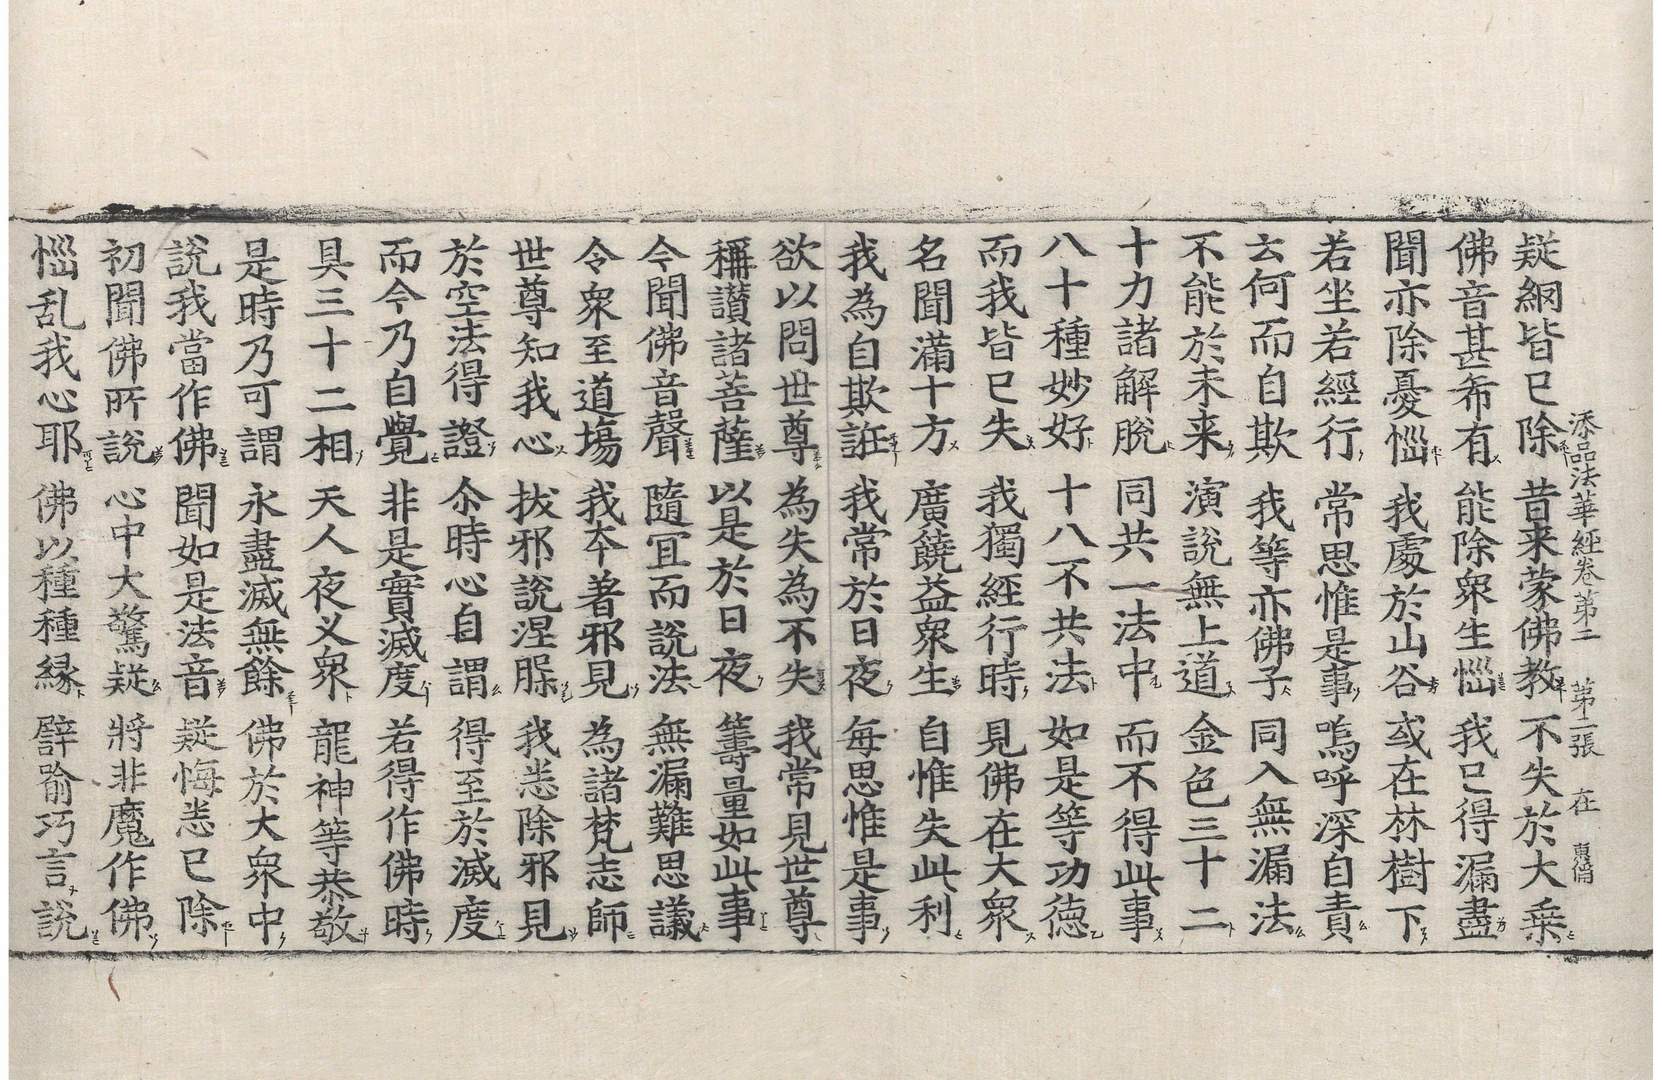 添品法華經卷第二 第二張 在
疑網皆已除 昔来蒙佛教 不失於大乗
佛音甚希有 能除衆生惱 我已得漏盡
聞亦除憂惱 我處於山谷 或在林樹下
若坐若經行 常思惟是事 嗚呼深自責
云何而自欺 我等亦佛子 同入無漏法
不能於未来 演說無上道 金色三十二
十力諸解脫 同共一法中 而不得此事
八十種妙好 十八不共法 如是等功徳
而我皆已失 我獨經行時 見佛在大衆
名聞滿十方 廣饒益衆生 自惟失此利
我為自欺誑 我常於日夜 每思惟是事
欲以問世尊 為失為不失 我常見世尊
稱讃諸菩薩 以是於日夜 籌量如此事
今聞佛音聲 隨冝而說法 無漏難思議
令衆至道塲 我夲著邪見 為諸梵志師
世尊知我心 拔邪說涅槃 我悉除邪見
於空法得證 尒時心自謂 得至於滅度
而今乃自覺 非是實滅度 若得作佛時
具三十二相 天人夜叉衆 龍神等恭敬
是時乃可謂 永盡滅無餘 佛於大衆中
說我當作佛 聞如是法音 疑悔悉已除
初聞佛所說 心中大驚疑 將非魔作佛
惱乱我心耶 佛以種種縁 譬踰巧言說